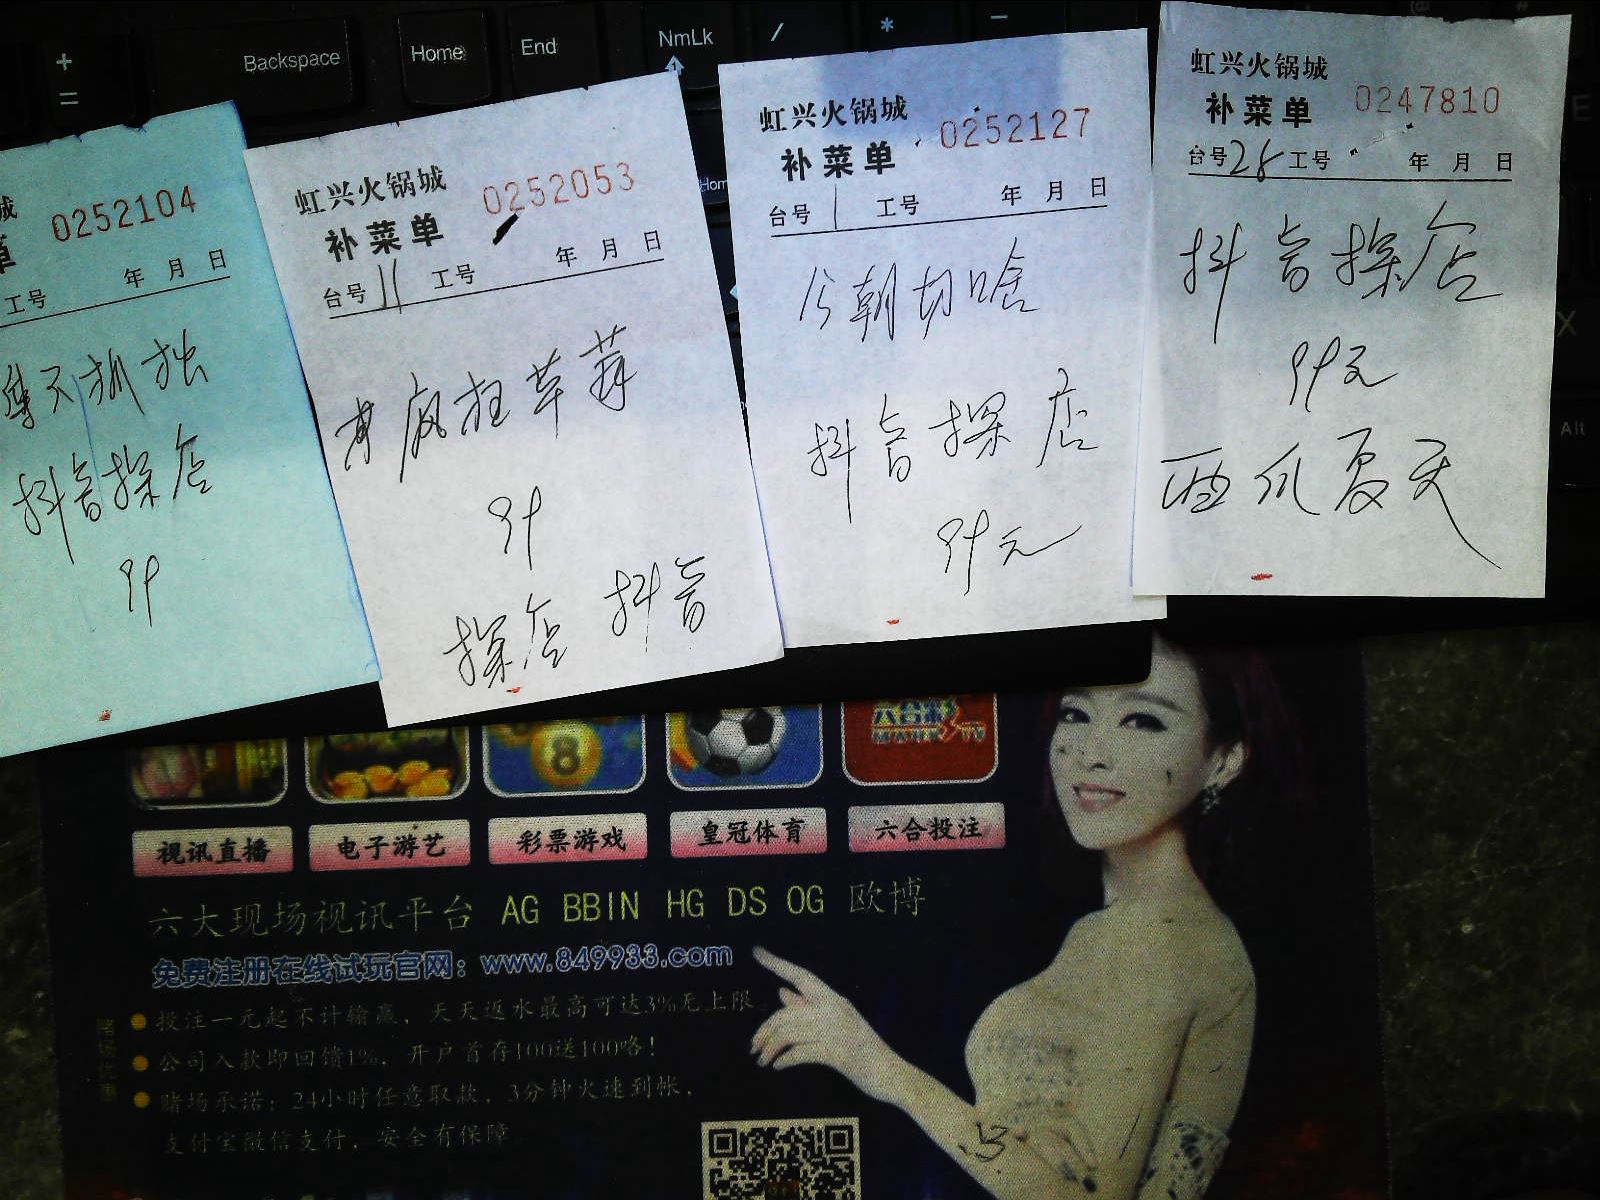 +
=
Backspace
Home
End
NmLk
/
*
-
0252104
工号 年 月 日
抖音探店
虹兴火锅城
补菜单 0252053
台号 11 工号 年 月 日
疯狂草莓
探店 抖音
虹兴火锅城
补菜单 0252127
台号 1 工号 年 月 日
今朝切啥
抖音探店
虹兴火锅城
补菜单 0247810
台号 28 工号 年 月 日
抖音探店
西瓜夏天
Alt
视讯直播 电子游艺 彩票游戏 皇冠体育 六合投注
六大现场视讯平台 AG BBIN HG DS OG 欧博
免费注册在线试玩官网：www.849933.com
投注一元起不计输赢，天天返水最高可达3%无上限
公司入款即回馈1%，开户首存100送100咯！
赌场承诺：24小时任意取款，3分钟火速到帐，
支付宝微信支付，安全有保障